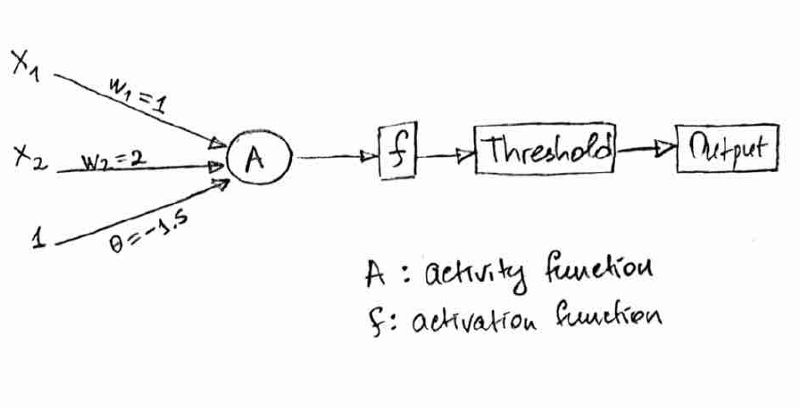 X1
W1=1
X2
W2=2
1
θ=-1.5
A
f
Threshold
Output
A : activity function
f: activation function